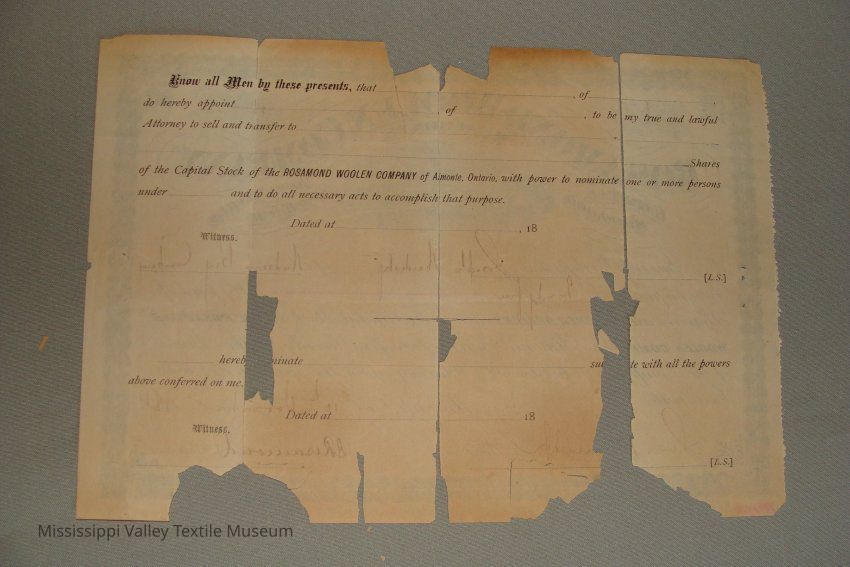 Know all Men by these presents, that , of ,
do hereby appoint , of , to be my true and lawful
Attorney to sell and transfer to
Shares
of the Capital Stock of the ROSAMOND WOOLEN COMPANY of Almonte, Ontario, with power to nominate one or more persons
under and to do all necessary acts to accomplish that purpose.
Dated at , 18
Witness.
[L.S.]
hereb inate su te with all the powers
above conferred on me.
Dated at 18
Witness.
[L.S.]
Mississippi Valley Textile Museum